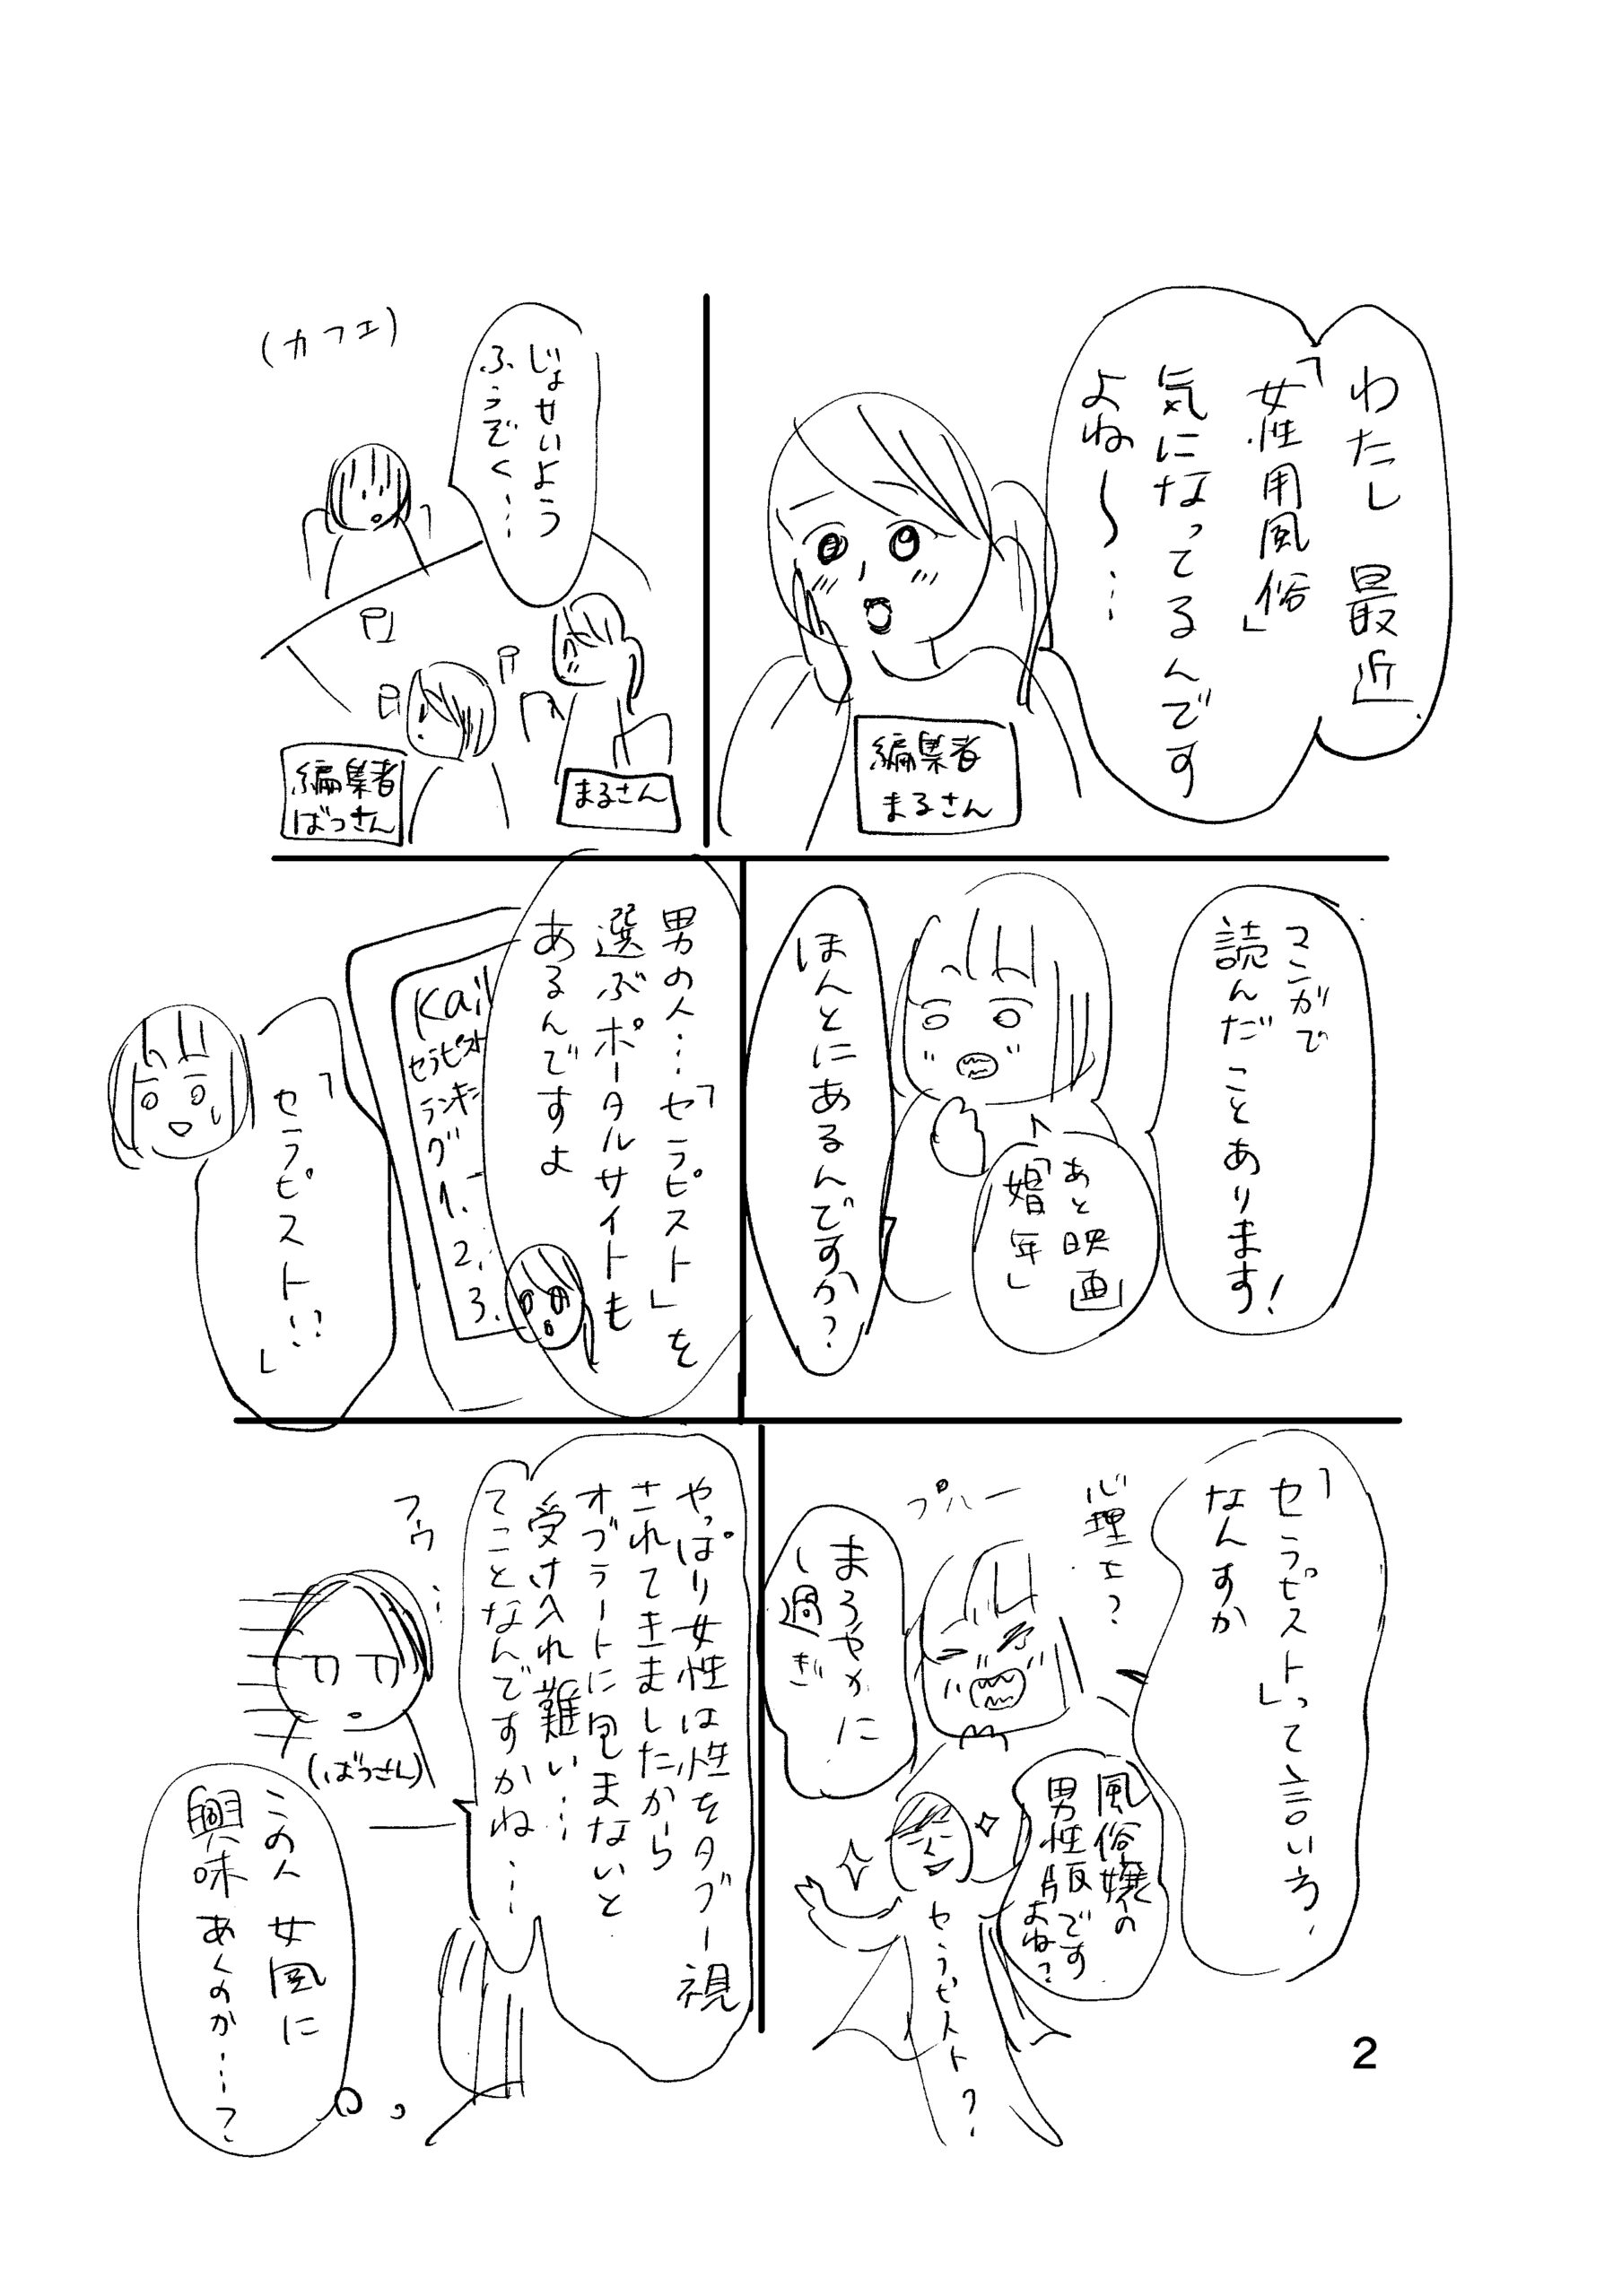 わたし 最近
「女性用風俗」
気になってるんです
よね〜…
編集者
まるさん
じょせいよう
ふうぞく…
(カフェ)
まるさん
編集者
ばつさん
マンガで
読んだことあります!
あと映画
「娼年」
ほんとにあるんですか?
男の人…「セラピスト」を
選ぶポータルサイトも
あるんですよ
Kai
セラピスト
ランキン
グ
1.
2.
3.
「セラピスト!?」
「セラピスト」って言いう、
なんすか
心理士?
プハー
まろやかに
し過ぎ
風俗嬢の
男性版です
よね?
セラピスト?
やっぱり女性は性をタブー視
されてきましたから
オブラートに包まないと
受け入れ難い…
てことなんですかね…
フゥ…
(ばつさん)
この人 女風に
興味あんのか…?
2